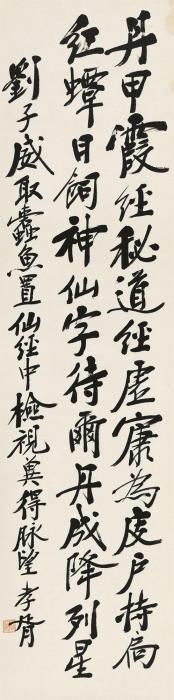 丹甲霞經秘道經虛寮為度戶持扃
紅蟫日飼神仙字待爾丹成降列星
劉子威取蠹魚置仙經中檢視冀得脉望李脊